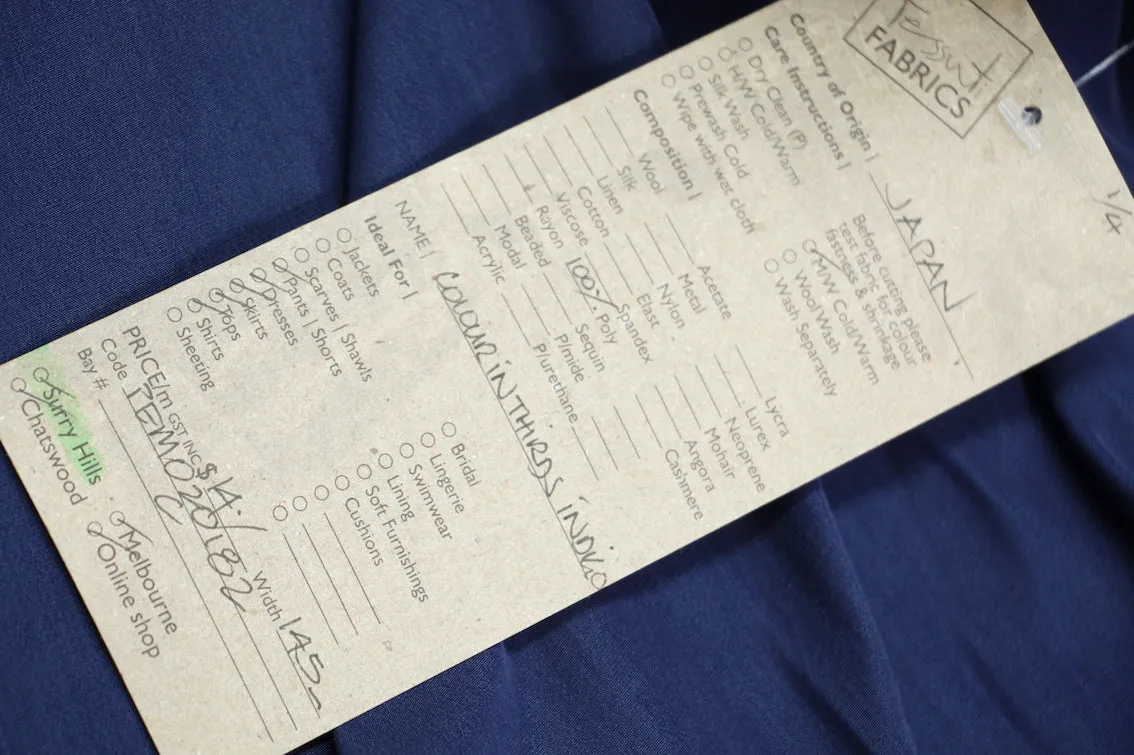 1/4
Tessuti
FABRICS
Country of Origin | JAPAN
Care Instructions |
Dry Clean (P)
H/W Cold/Warm
Silk Wash
Prewash Cold
Wipe with wet cloth
Before cutting please
test fabric for colour
fastness & shrinkage
M/W Cold/Warm
Wool Wash
Wash Separately
Composition |
Wool
Silk
Linen
Cotton
Viscose
Rayon
Beaded
Modal
Acrylic
Acetate
Metal
Nylon
Elast
Spandex
100% Poly
Sequin
P/mide
P/urethane
Lycra
Lurex
Neoprene
Mohair
Angora
Cashmere
NAME | COLOUR IN THIRDS INDIGO
Ideal For |
Jackets
Coats
Scarves | Shawls
Pants | Shorts
Dresses
Skirts
Tops
Shirts
Sheeting
Bridal
Lingerie
Swimwear
Lining
Soft Furnishings
Cushions
PRICE/m GST INC $14.- Width 145
Code
Bay #
Surry Hills
Chatswood
Melbourne
Online shop